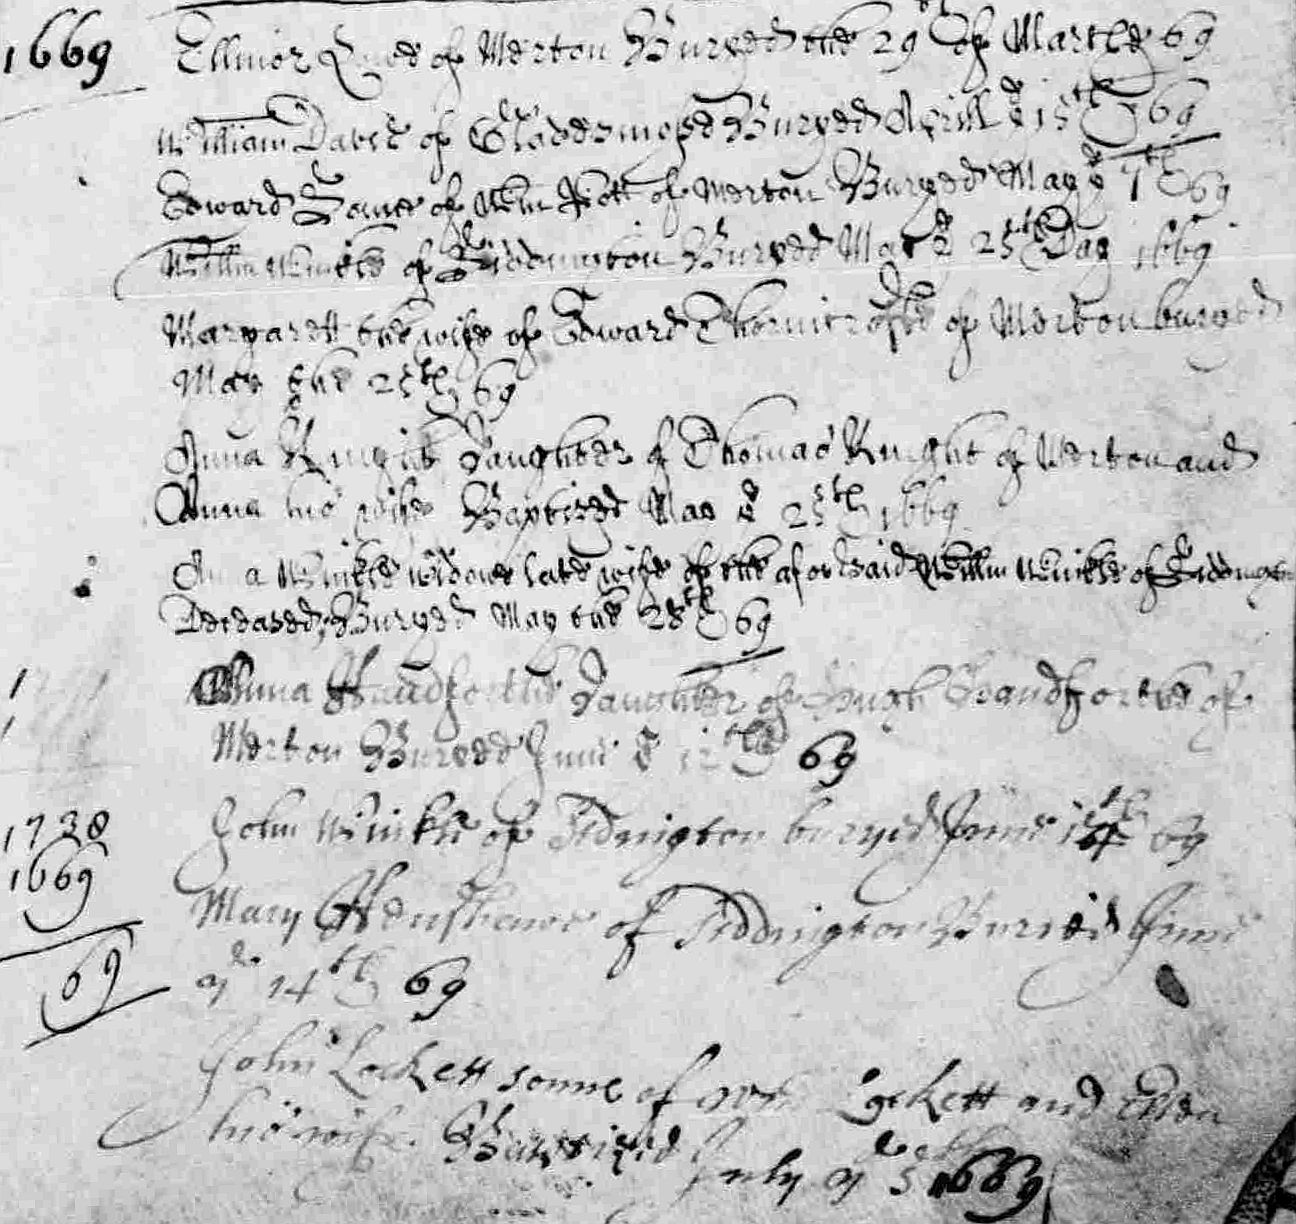 1669 Ellinor of Merton Buryed the 29th of March 69
William of Buryed Aprill ye 15th 69
Edward Sonne of Willm of Merton Buryed May ye 7th 69
Willm Winkle of Siddington Buryed May ye 25th Day 1669
Margarett the wife of Edward Thornicrofte of Merton buryed
May the 25th 69
Anna Knight Daughter of Thomas Knight of Merton and
Anna his wife Baptized May ye 25th 1669
Winkle widowe late wife of the aforesaid Willm Winkle of Siddington
Deceased, Buryed May the 28th 69
Anna Handforthe Daughter of Hugh Handforthe of
Merton Buryed June ye 12th 69
John Winkle of Sidington buryed June 14th 69
1738
1669
Mary Henshawe of Siddington Buried June
ye 14th 69
69
John Lockett sonne of Lockett and Ellen
his wife Baptized July ye 5th 1669